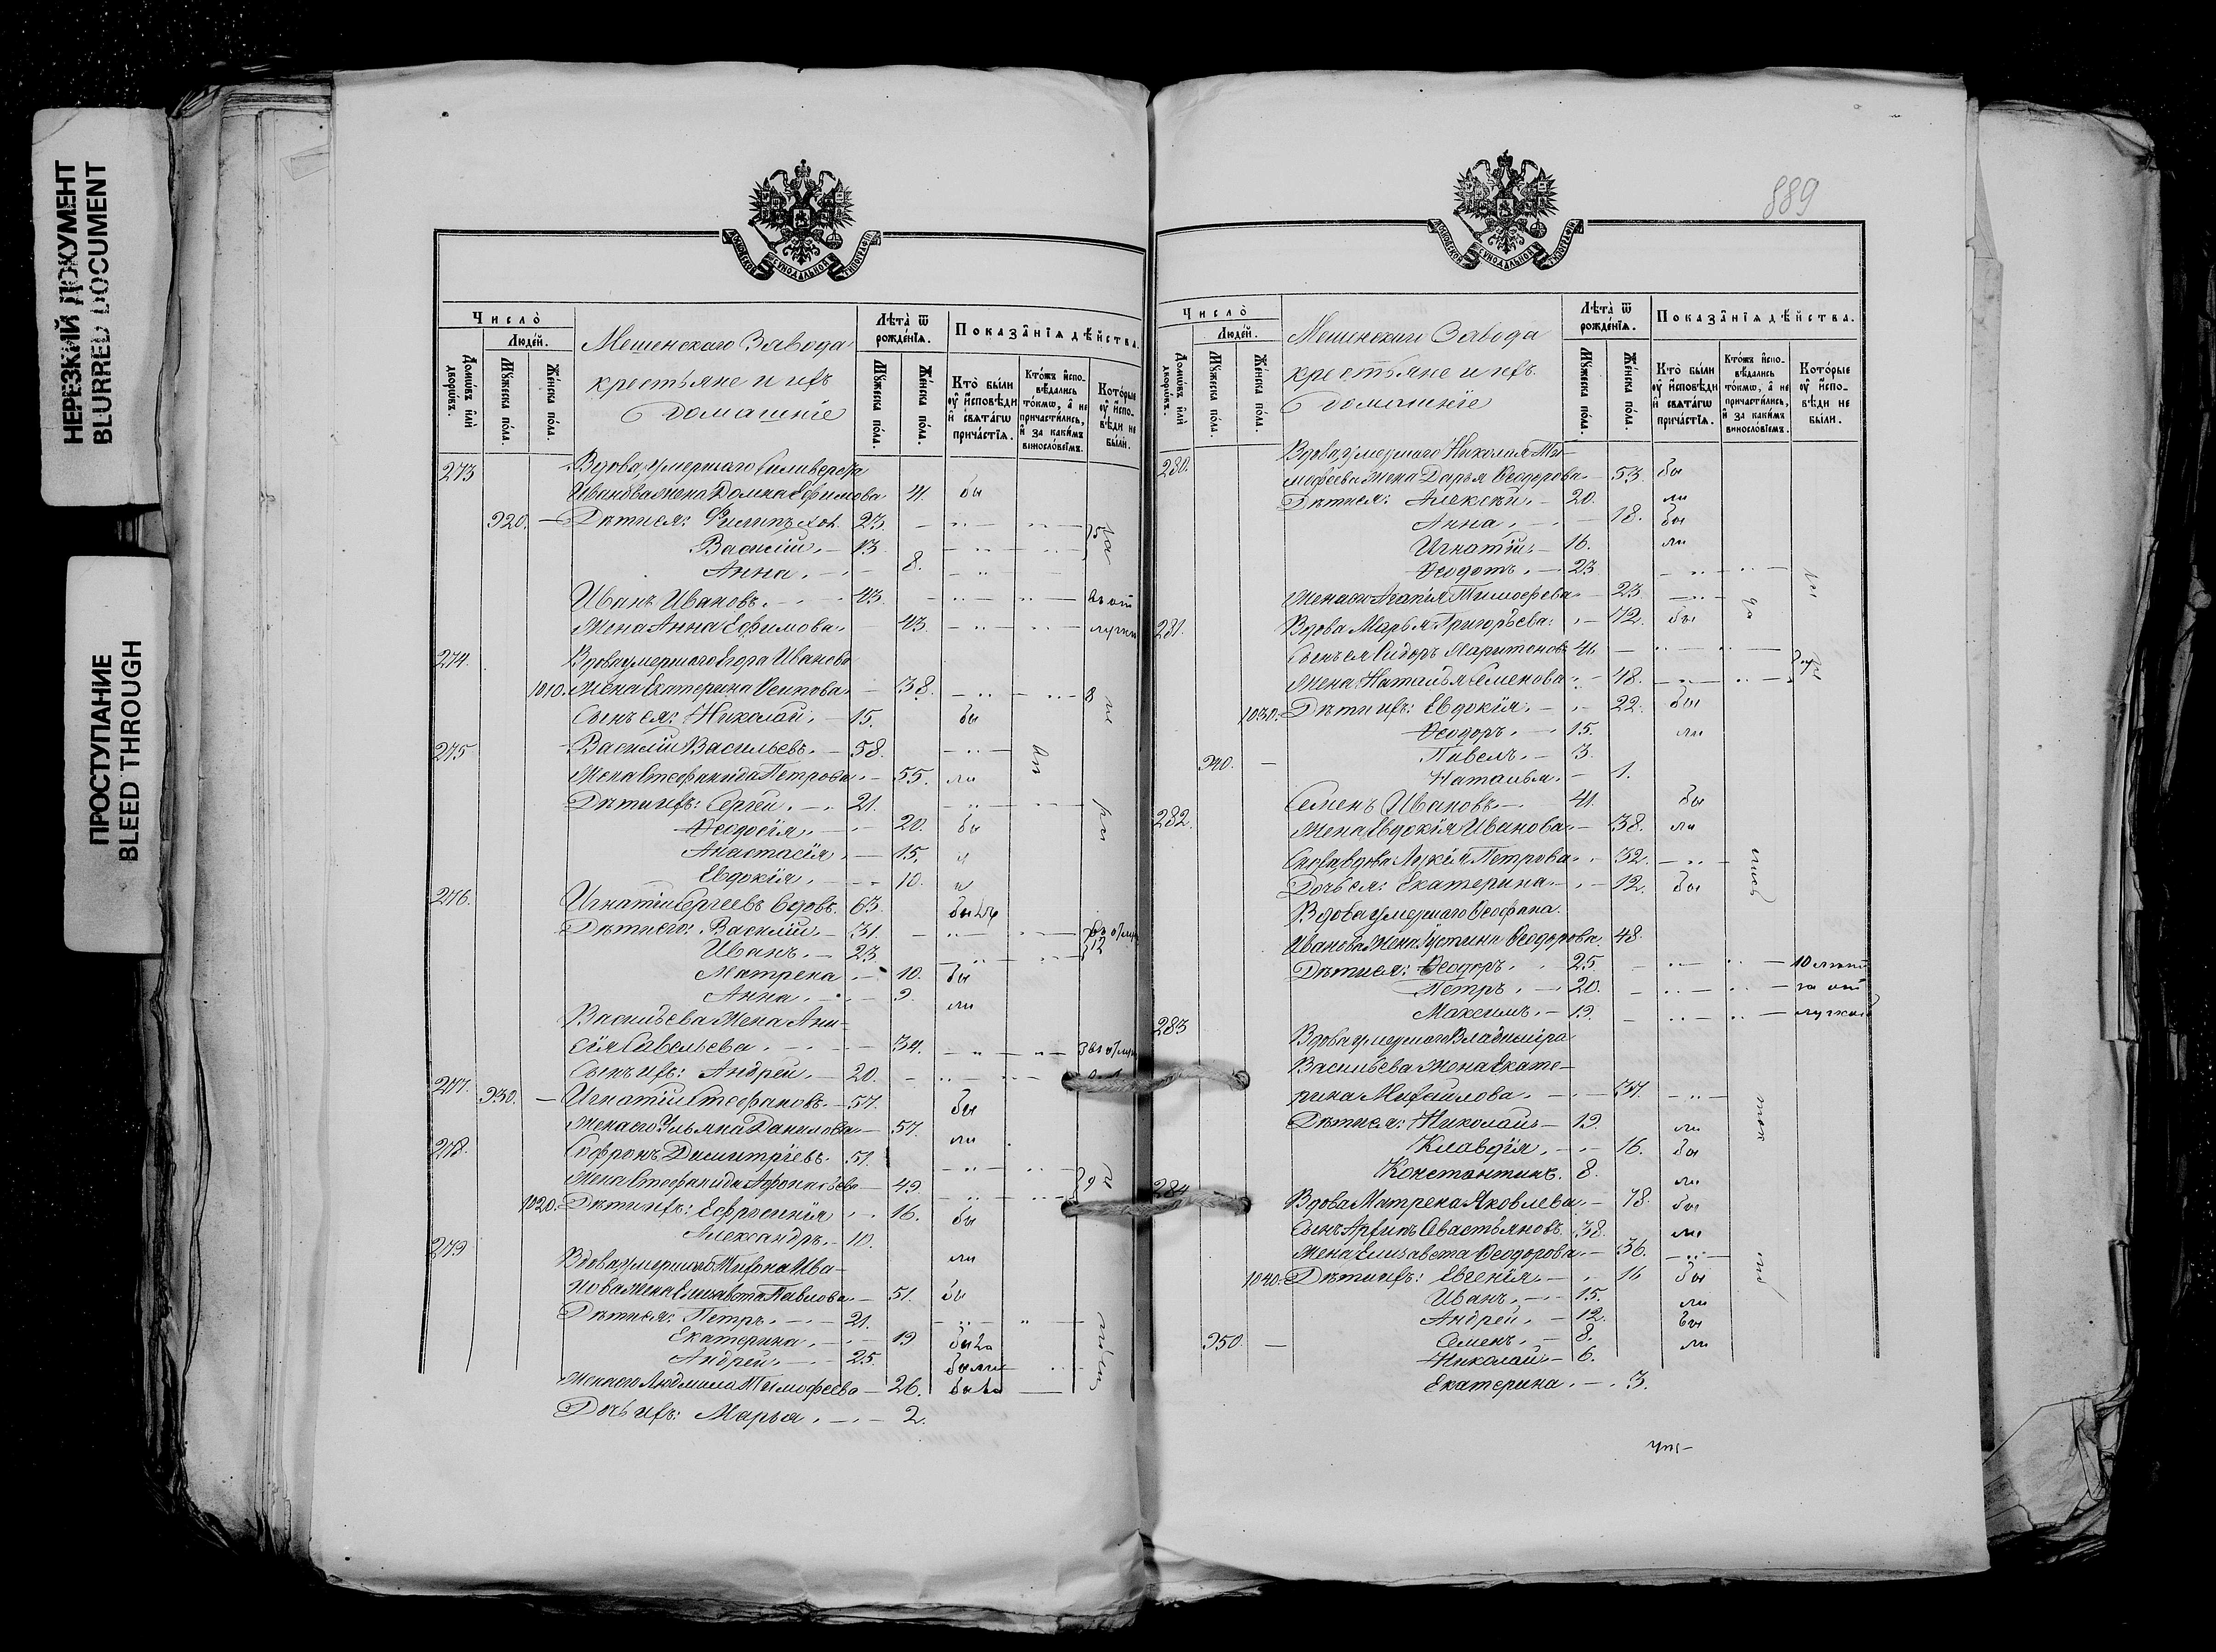 НЕРЕЗКИЙ ДОКУМЕНТ
BLURRED DOCUMENT
ПРОСТУПАНИЕ
BLEED THROUGH
МОСКОВСКОЙ СѴНОДАЛЬНОЙ ТИПОГРАФІИ
Число̀
Люде́й.
Домѡ́въ и҆лѝ дворѡ́въ.
Мꙋ́жеска по́ла.
Же́нска по́ла.
Мешенскаго Завода
крестьяне и ихъ
домашніе
Лѣ́та ѿ рожде́нїѧ.
Мꙋ́жеска по́ла.
Же́нска по́ла.
Показа̑нїѧ дѣ́йства.
Кто̀ бы́ли ᲂу҆ и҆сповѣди и҆ свѧта́гѡ прича́стїѧ.
Кто́жъ и҆спо-вѣ́дались то́кмѡ, а҆ не причасти́лись, и҆ за каки́мъ винослові́емъ.
Кото́рые ᲂу҆ и҆спо-вѣ́ди не бы́ли.
273 Вдова умершаго Селиверста
Иванова жена Домна Ефимова 41. бы
920. Дѣти ея: Филипъ хол. 23.
Василій. 13.
Анна. 8.
Иванъ Ивановъ. 43. въ от
Жена Анна Ефимова 43. лучкѣ
274. Вдова умершаго Егора Иванова
1010. Жена Екатерина Осипова 38.
Сынъ ея: Николай. 15. бы
275 Василій Васильевъ. 58.
Жена Стефанида Петрова 55. ли
Дѣти ихъ: Сергѣй. 21.
Ѳеодосія. 20. бы
Анастасія. 15.
Евдокія. 10.
276. Игнатій Сергеевъ вдовъ. 63.
Дѣти его: Василій. 31.
Иванъ. 23
Матрена 10. бы
Анна. 9. ли
Васильева жена Ани-
сія Савельева. 34.
Сынъ ихъ: Андрей. 20.
277. 930. Игнатій Стефановъ. 57. бы
Жена его Ульяна Данилова 57. ли
278. Софронъ Димитріевъ. 51.
Жена Стефанида Афонасьева 49.
1020. Дѣти ихъ: Ефросинія 16. бы
Александръ. 10. ли
279 Вдова умершаго Тихона Ива-
нова жена Елисавета Павлова 51. бы
Дѣти ея: Петръ. 21.
Екатерина. 19
Андрей. 25.
Жена его Людмила Тимофеева 26.
Дочь ихъ: Марья. 2.
889
МОСКОВСКОЙ СѴНОДАЛЬНОЙ ТИПОГРАФІИ
Число̀
Люде́й.
Домѡ́въ и҆лѝ дворѡ́въ.
Мꙋ́жеска по́ла.
Же́нска по́ла.
Мешенскаго Завода
крестьяне и ихъ
домашніе
Лѣ́та ѿ рожде́нїѧ.
Мꙋ́жеска по́ла.
Же́нска по́ла.
Показа̑нїѧ дѣ́йства.
Кто̀ бы́ли ᲂу҆ и҆сповѣди и҆ свѧта́гѡ прича́стїѧ.
Кто́жъ и҆спо-вѣ́дались то́кмѡ, а҆ не причасти́лись, и҆ за каки́мъ винослові́емъ.
Кото́рые ᲂу҆ и҆спо-вѣ́ди не бы́ли.
280. Вдова умершаго Николая Ти-
мофеева жена Дарья Ѳеодорова 53. бы
Дѣти ея: Алексѣй. 20. ли
Анна. 18. бы
Игнатій. 16. ли
Ѳеодотъ. 23
Жена его Агапія Тимофеева 23
281. Вдова Марья Григорьева. 72. бы
Сынъ ея Сидоръ Харитоновъ 46
Жена Наталья Семенова 48.
1030. Дѣти ихъ: Евдокія. 22. бы
Ѳеодоръ. 15. ли
940. Павелъ. 3.
Наталья. 1.
282. Семенъ Ивановъ 41. бы
Жена Евдокія Иванова 38. ли
Сноха вдова Лукія Петрова 32.
Дочь ея: Екатерина. 12. бы
Вдова умершаго Ѳеофана
Иванова жена Устинья Ѳеодорова. 48.
Дѣти ея: Ѳеодоръ. 25. 10 лѣтъ
Петръ. 20. за от
Максимъ. 19. лучкой
283 Вдова умершаго Владиміра
Васильева жена Екате-
рина Михайлова. 37.
Дѣти ея: Николай 19. ли
Клавдія. 16. бы
Константинъ. 8. ли
284 Вдова Матрена Яковлева. 78. бы
Сынъ Архипъ Савастьяновъ. 38. ли
Жена Елисавета Ѳеодорова. 36.
1040. Дѣти ихъ: Евгенія. 16 бы
Иванъ. 15. ли
Андрей. 12. бы
950 Семенъ. 8. ли
Николай 6.
Екатерина. 3.